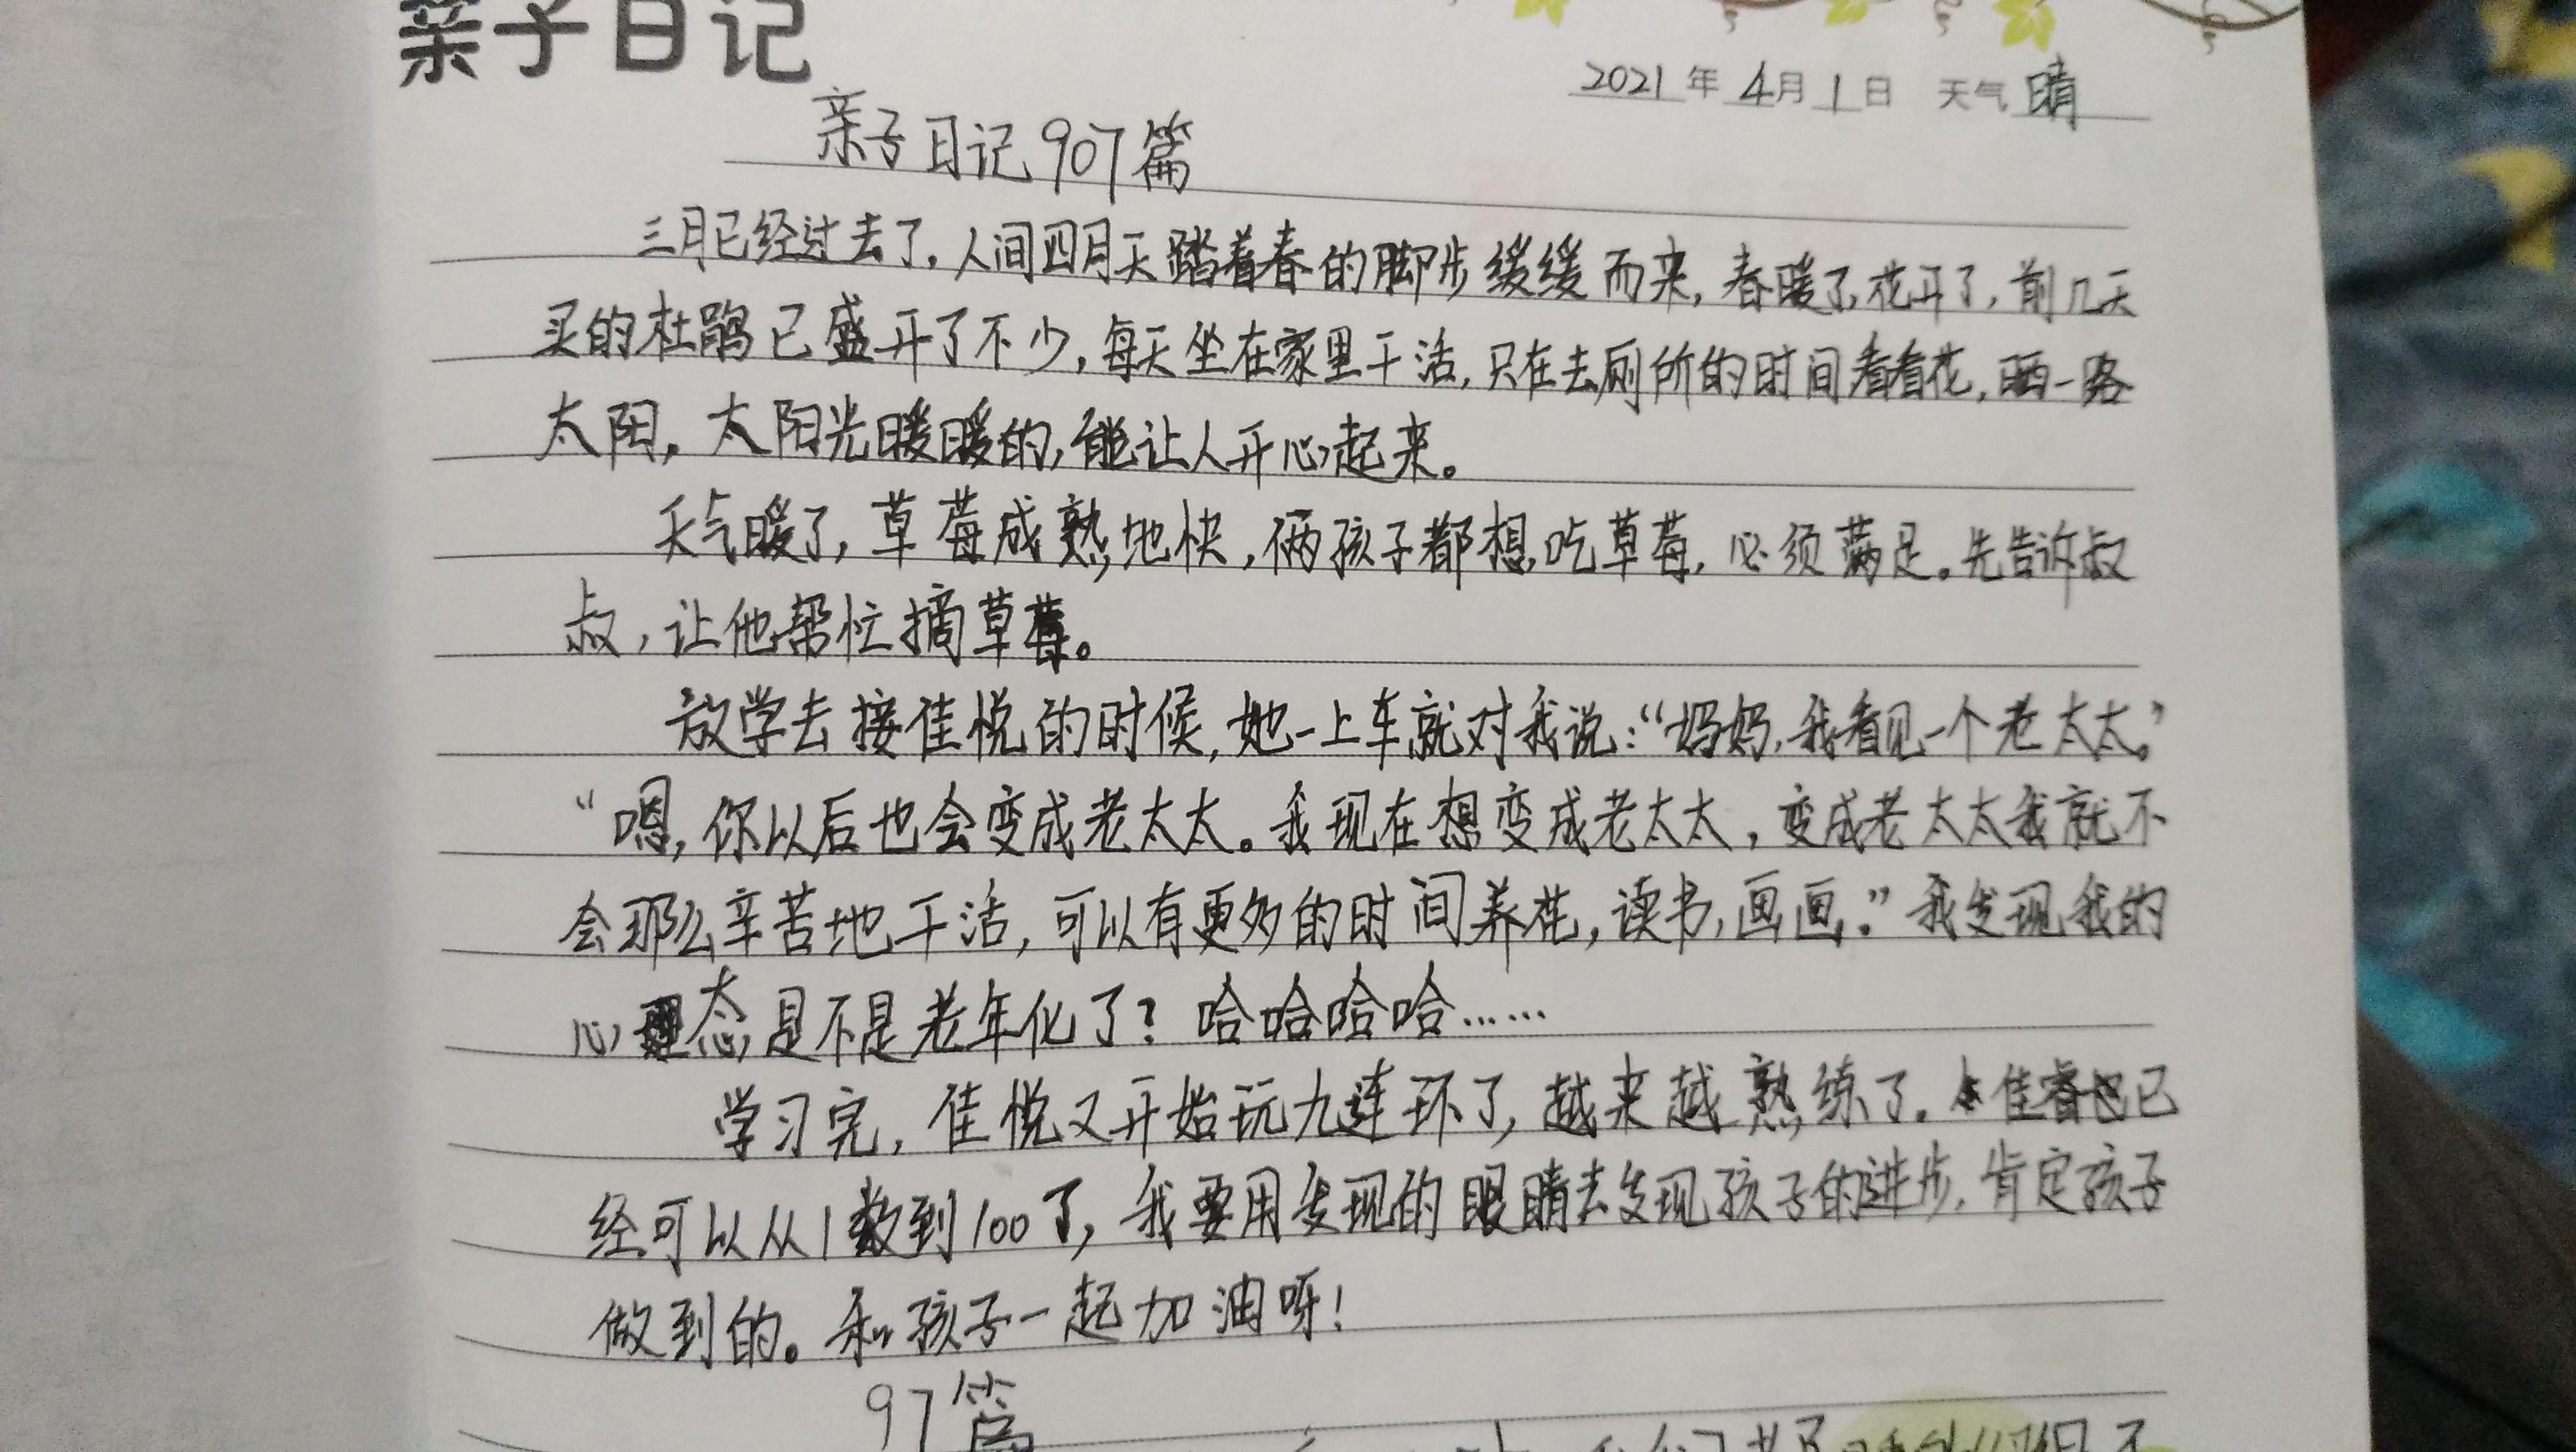 亲子日记
2021年4月1日 天气晴
亲子日记907篇
三月已经过去了,人间四月天踏着春的脚步缓缓而来,春暖了,花开了,前几天
买的杜鹃已盛开了不少,每天坐在家里干活,只在去厕所的时间看看花,晒一路
太阳,太阳光暖暖的,能让人开心起来。
天气暖了,草莓成熟地快,俩孩子都想吃草莓,必须满足。先告诉叔
叔,让他帮忙摘草莓。
放学去接佳悦的时候,她一上车就对我说:“妈妈,我看见一个老太太。”
“嗯,你以后也会变成老太太。我现在想变成老太太,变成老太太我就不
会那么辛苦地干活,可以有更多的时间养花,读书,画画。”我发现我的
心态是不是老年化了?哈哈哈哈……
学习完,佳悦又开始玩九连环了,越来越熟练了。佳睿也已
经可以从1数到100了,我要用发现的眼睛去发现孩子的进步,肯定孩子
做到的。和孩子一起加油呀!
97篇